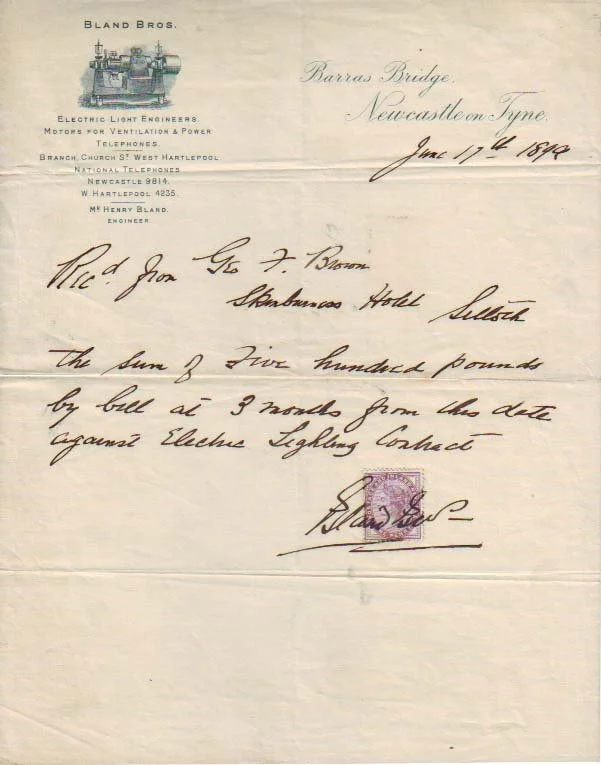 BLAND BROS.
ELECTRIC LIGHT ENGINEERS.
MOTORS FOR VENTILATION & POWER
TELEPHONES.
BRANCH, CHURCH ST WEST HARTLEPOOL.
NATIONAL TELEPHONES
NEWCASTLE 9814.
W. HARTLEPOOL 4235.
MR HENRY BLAND.
ENGINEER
Barras Bridge,
Newcastle on Tyne.
June 17th 189
Recd. from Geo F. Brown
Skinburness Hotel Silloth
the sum of Five hundred pounds
by bill at 3 months from this date
against Electric Lighting Contract
Bland Bros